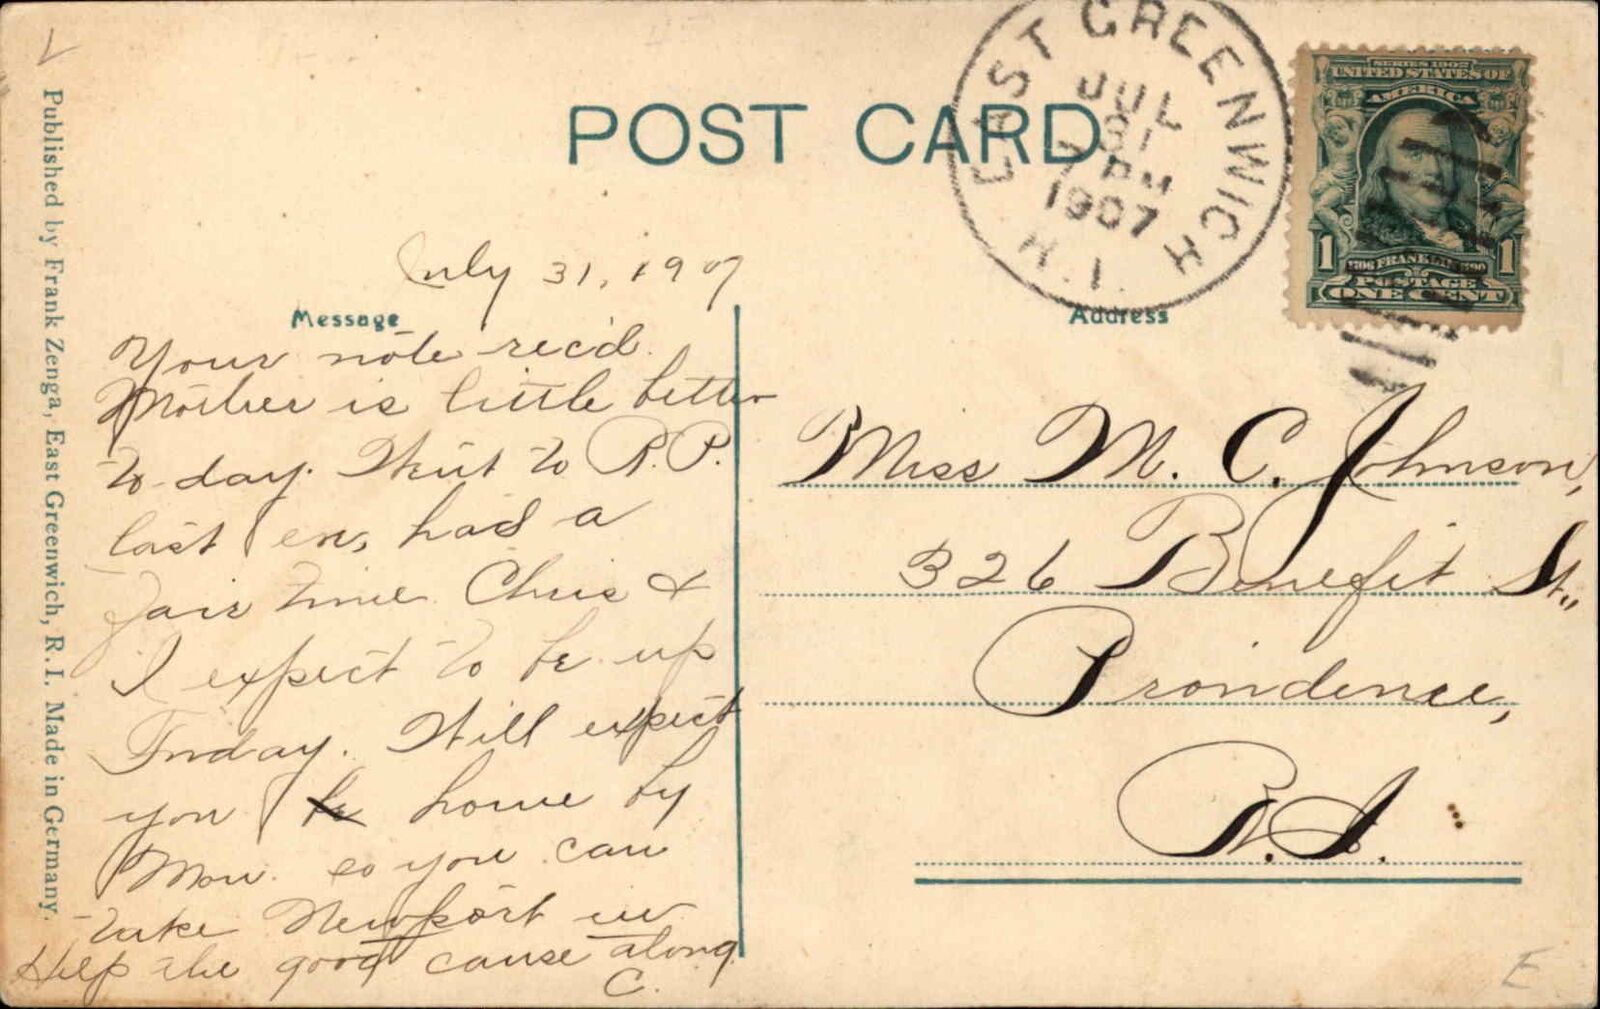 Published by Frank Zenga, East Greenwich, R. I. Made in Germany.
POST CARD
EAST GREENWICH
JUL
31
7 PM
1907
R.I.
SERIES 1902
UNITED STATES OF
AMERICA
1 1
FRANKLIN
POSTAGE
ONE CENT
July 31, 1907
Message
Your note rec'd.
Mother is little better
to-day. Went to R.P.
last eve, had a
fair time. Chris &
I expect to be up
Friday. Will expect
you be home by
Mon. so you can
take Newport in
Help the good cause along
C.
Address
Miss M. C. Johnson,
326 Benefit St.,
Providence,
R.I.
E